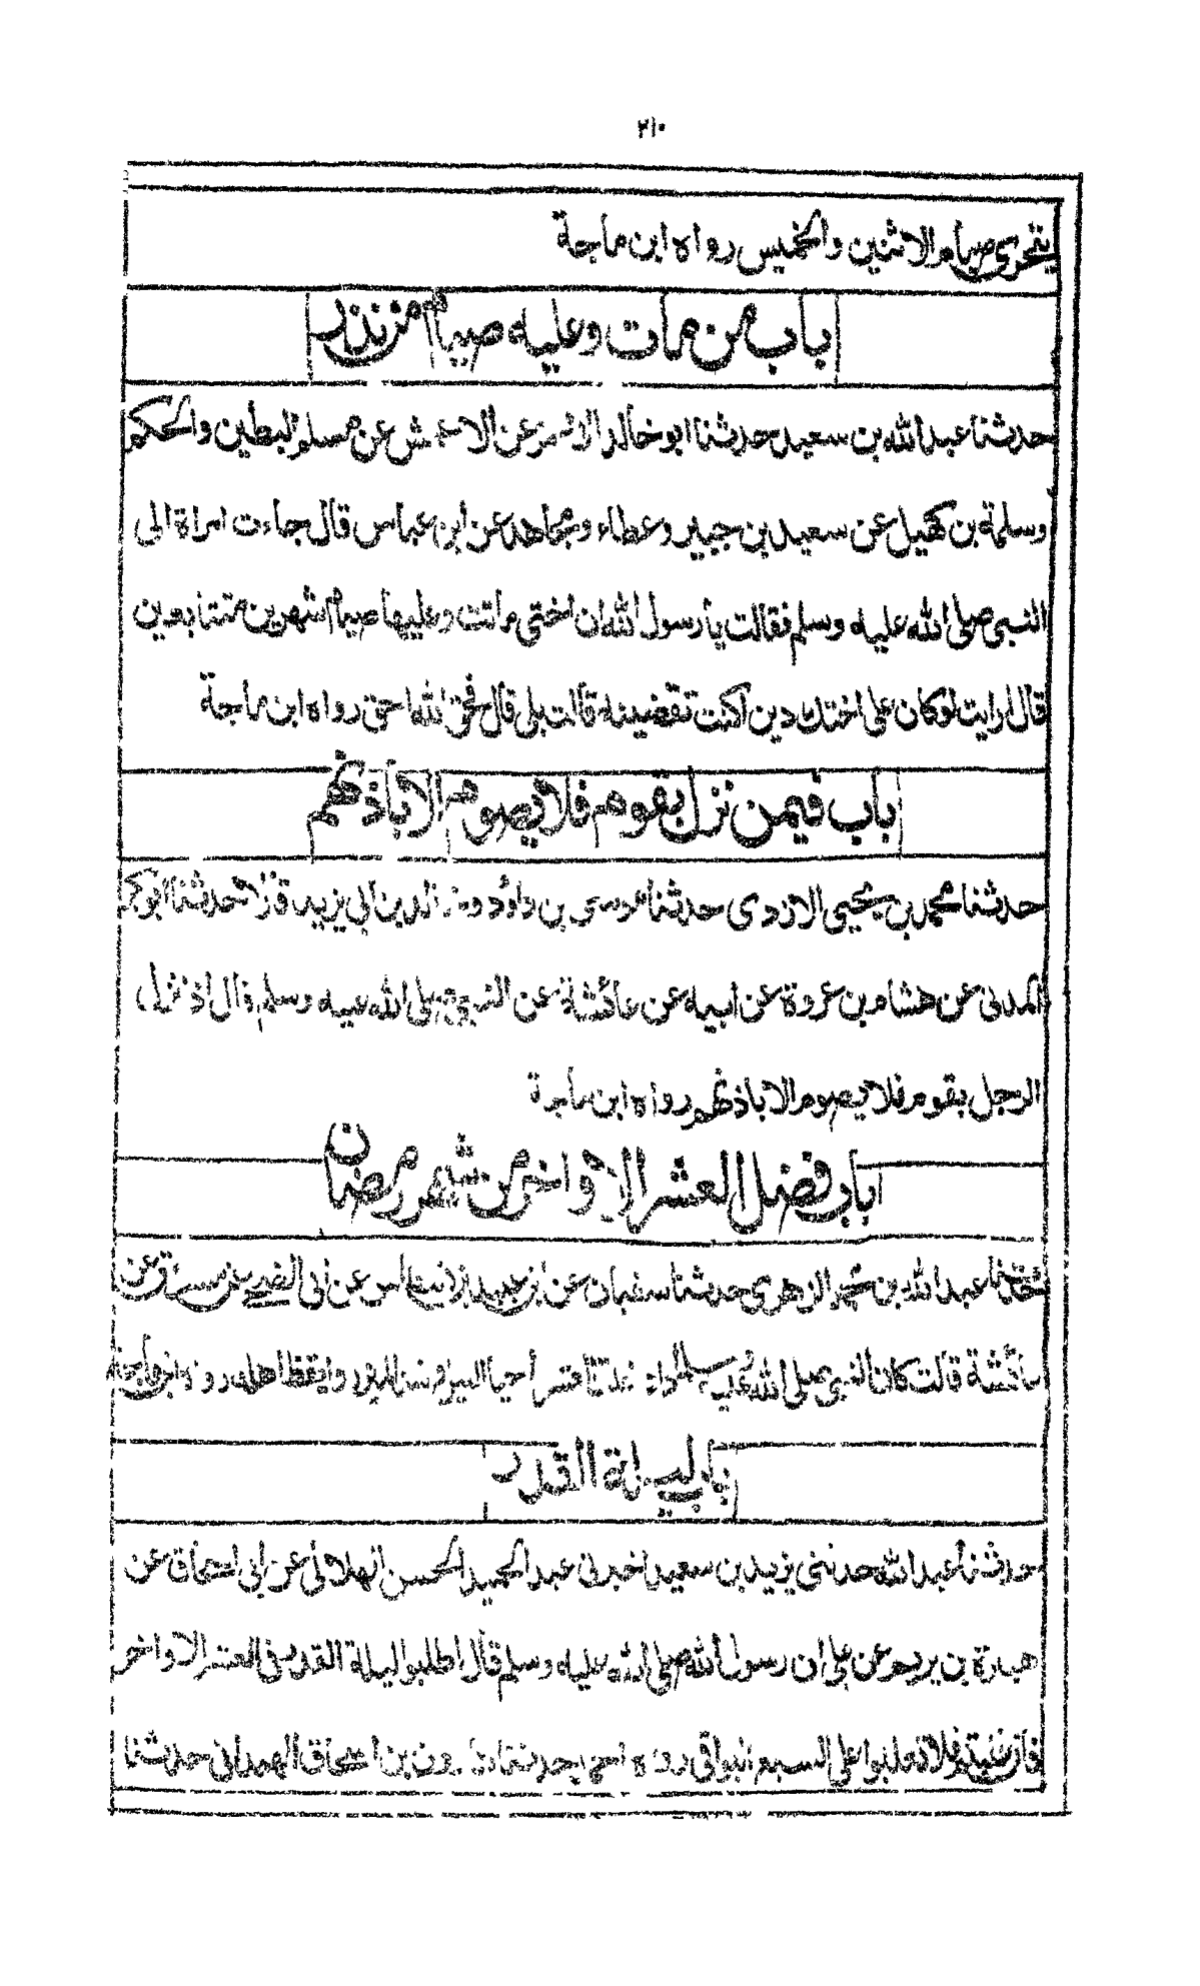 ٢١٠
يتحرى صيام الاثنين والخميس رواه ابن ماجة
باب من مات وعليه صيام من نذر
حدثنا عبد الله بن سعيد حدثنا ابو خالد الاحمر عن الاعمش عن مسلم البطين والحكم
وسلمة بن كهيل عن سعيد بن جبير وعطاء ومجاهد عن ابن عباس قال جاءت امراة الى
النبي صلى الله عليه وسلم فقالت يا رسول الله ان اختي ماتت وعليها صيام شهرين متتابعين
قال ارايت لو كان على اختك دين اكنت تقضينه قالت بلى قال فحق الله احق رواه ابن ماجة
باب فيمن نزل بقوم فلا يصوم الا باذنهم
حدثنا محمد بن يحيى الازدي حدثنا موسى بن داؤد وخالد بن ابي يزيد قالا حدثنا ابو بكر
المدني عن هشام بن عروة عن ابيه عن عائشة عن النبي صلى الله عليه وسلم قال اذا نزل
الرجل بقوم فلا يصوم الا باذنهم رواه ابن ماجة
باب فضل العشر الاواخر من شهر رمضان
حدثنا عبد الله بن محمد الزهري حدثنا سفيان عن ابن عبيد بن نسطاس عن ابي الضحى عن مسروق عن
عائشة قالت كان النبي صلى الله عليه وسلم اذا دخلت العشر احيا الليل وشد الميزر وايقظ اهله رواه ابن ماجة
باب ليلة القدر
حدثنا عبد الله حدثني يزيد بن سعيد اخبرني عبد الحميد الحسن الهلالي عن ابي اسحاق عن
هبيرة بن يريم عن علي ان رسول الله صلى الله عليه وسلم قال اطلبوا ليلة القدر في العشر الاواخر
فان غلبتم فلا تغلبوا على السبع البواقي رواه احمد حدثنا هارون بن اسحاق الهمداني حدثنا